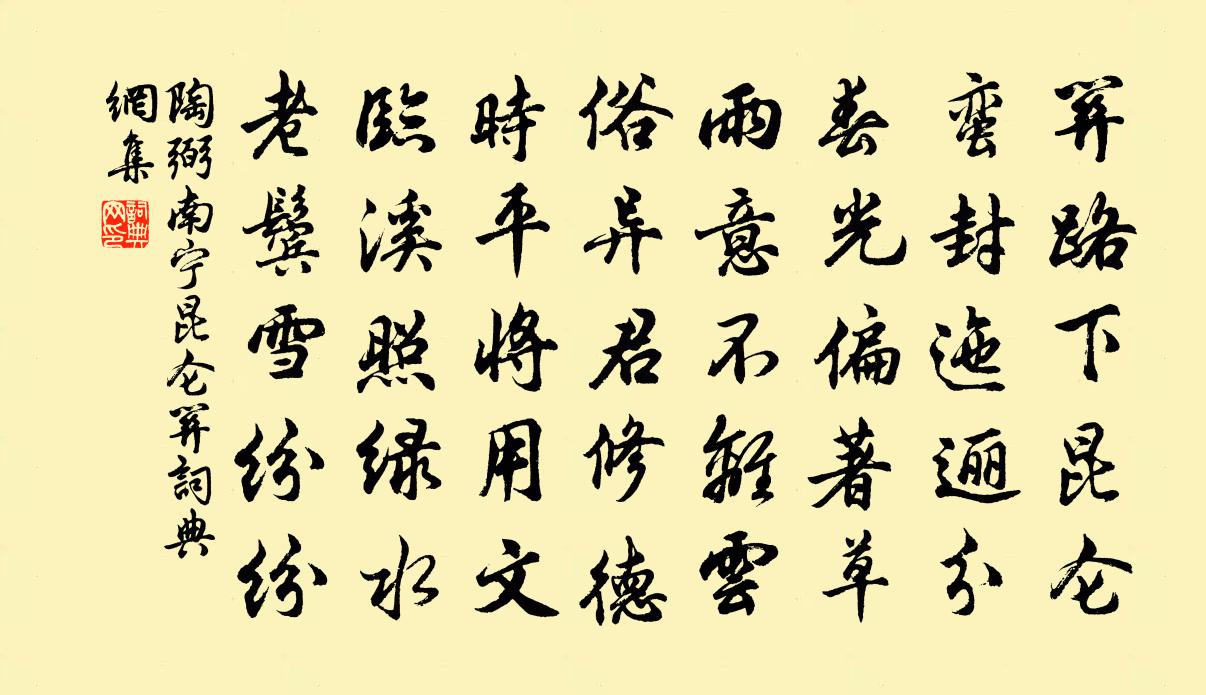 关路下昆仑
蛮封迤逦分
春光偏著草
雨意不離雲
俗异君修德
時平将用文
臨溪照绿水
老鬓雪纷纷
陶弼南宁昆仑关詞典
網集
詞典
网印